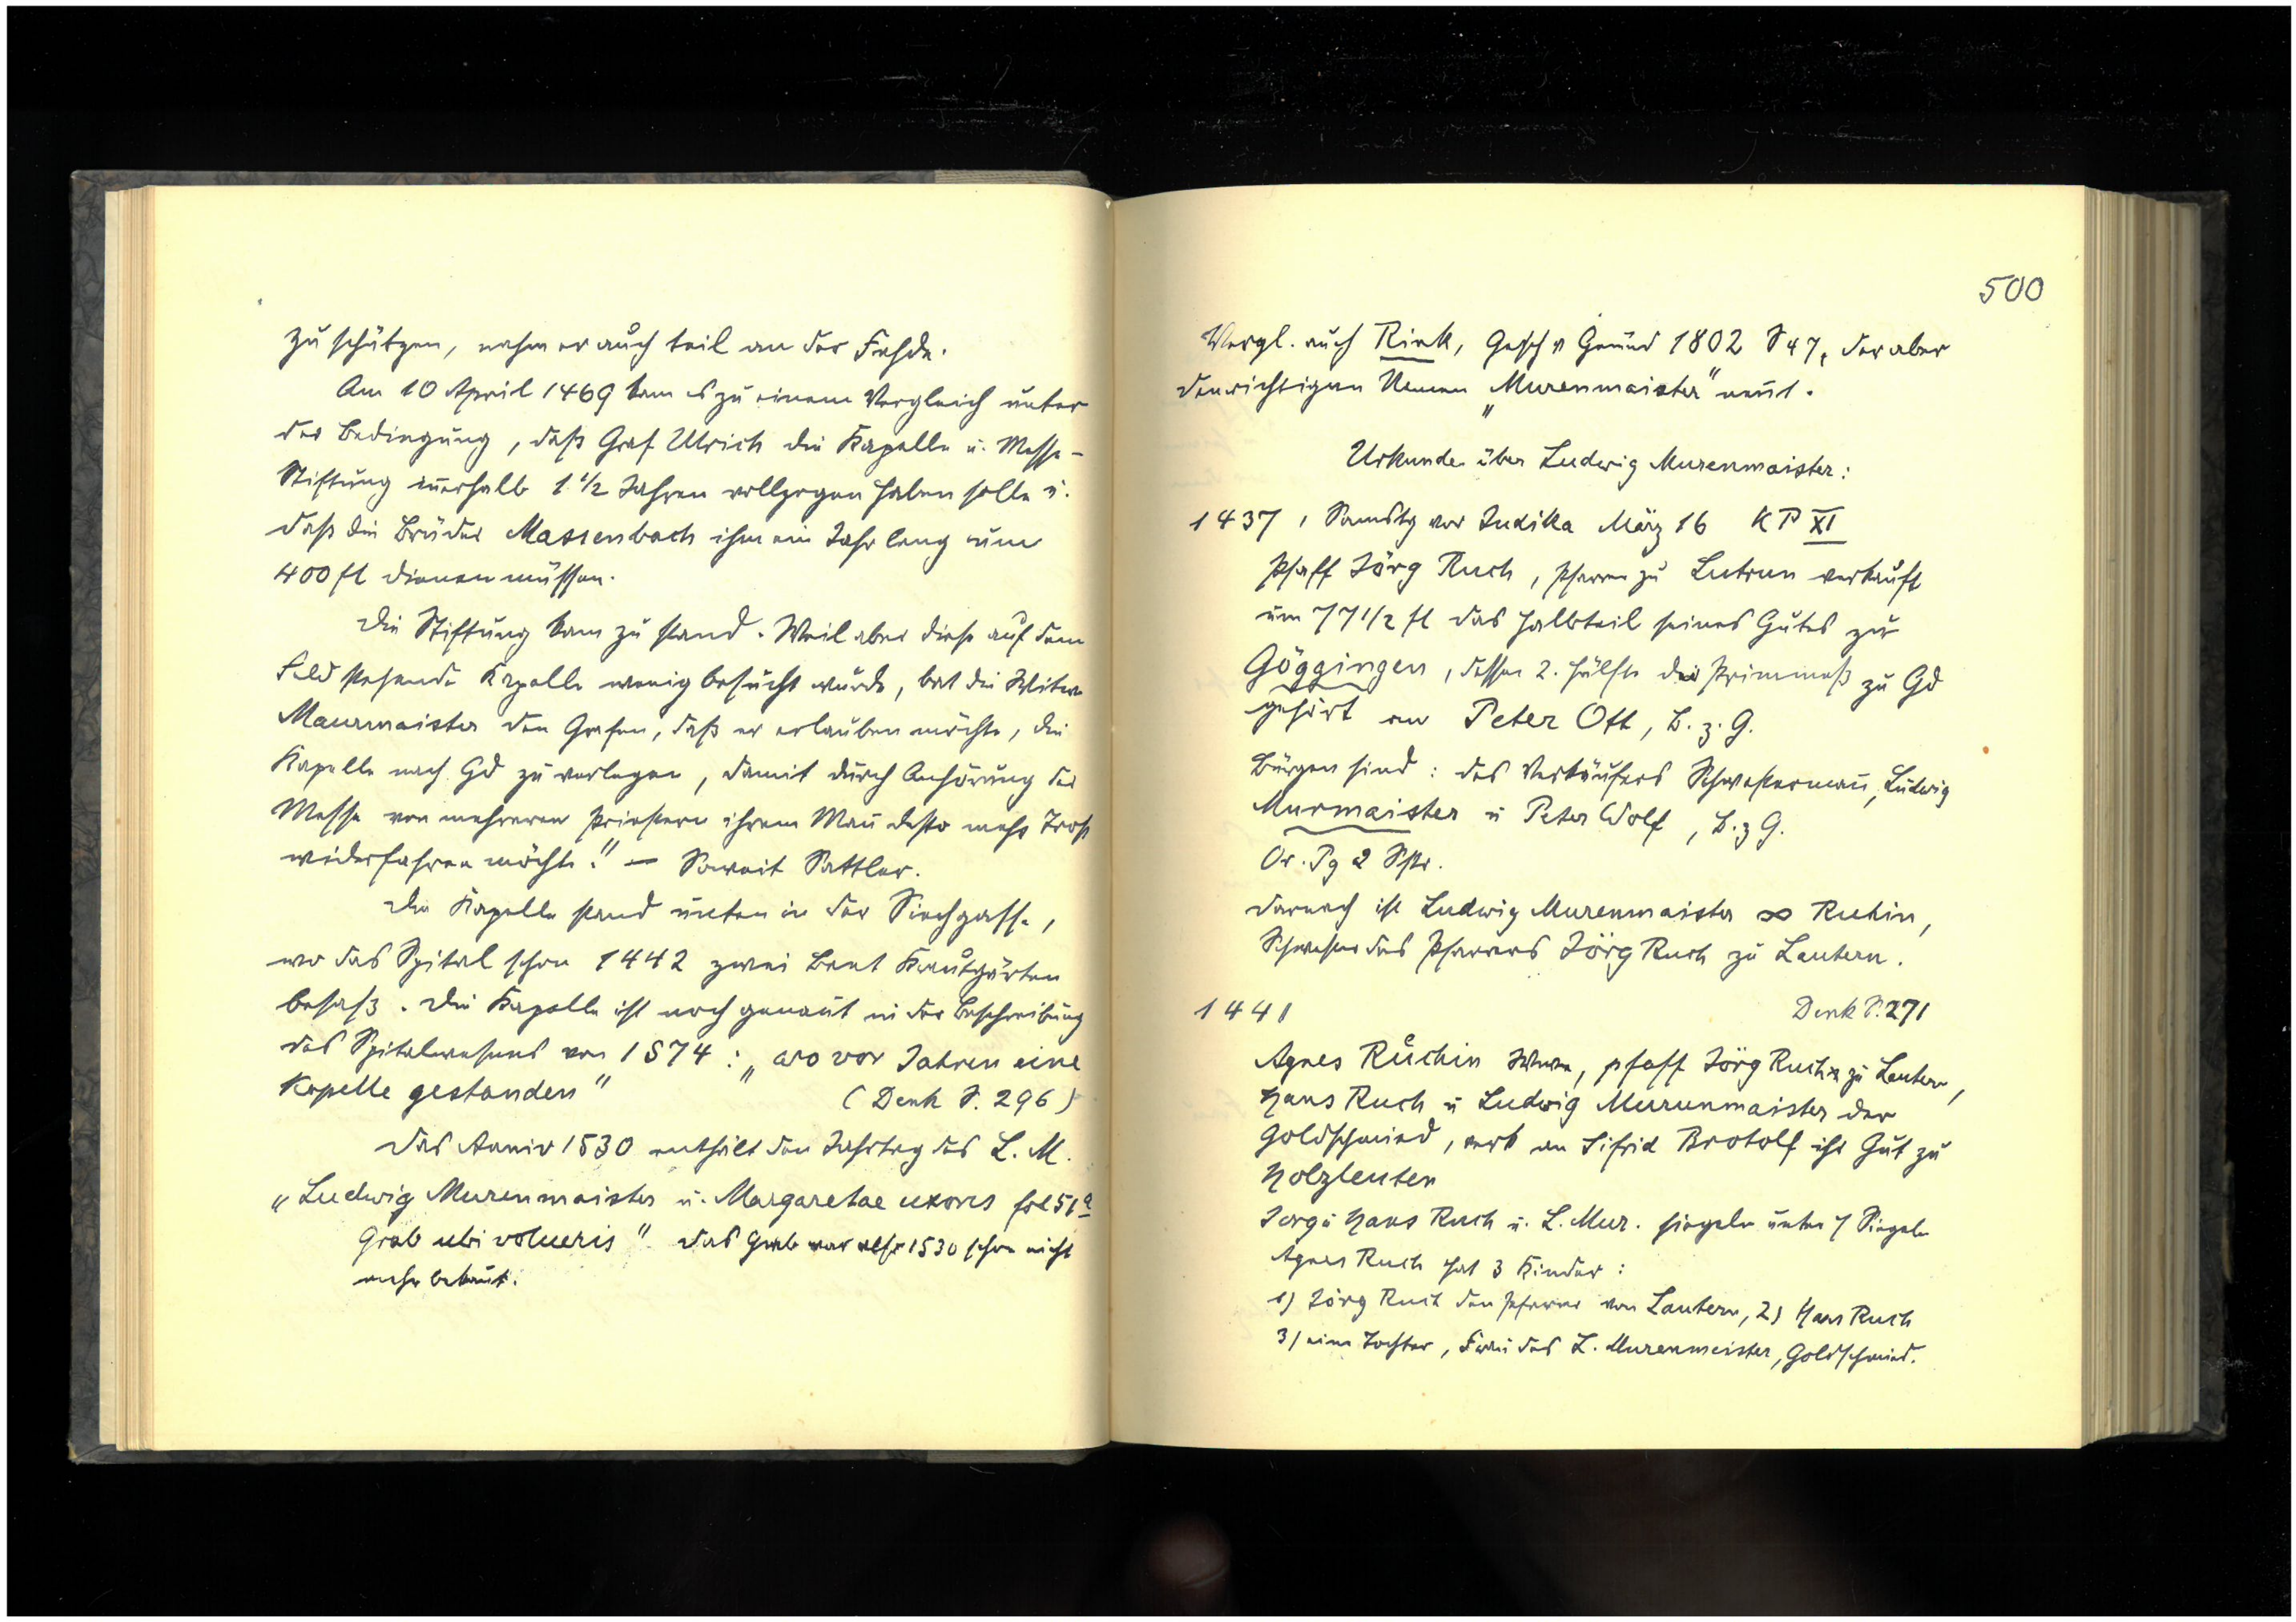 zu schützen, nahm er auch teil an der Fehde.
Am 10 April 1469 kam es zu einem Vergleich unter
der Bedingung, daß Graf Ulrich die Kapelle u. Messe-
Stiftung inerhalb 1 1/2 Jahren vollzogen haben solle u.
daß die Brüder Massenbach ihm ein Jahr lang um
400 fl dienen müssen.
Die Stiftung kam zu stand. Weil aber diese auf dem
Feld stehende Kapelle wenig besucht wurde, bat die Witwe
Maurmaister den Grafen, daß er erlauben möchte, die
Kapelle nach Gd zu verlegen, damit durch Anhörung der
Messe von mehreren Priestern ihrem Mañ desto mehr Trost
widerfahren möchte!" — Soweit Sattler.
Die Kapelle stand unten in der Siechgasse,
wo das Spital schon 1442 zwei Beet Krautgärten
besaß. Die Kapelle ist noch genañt in der Beschreibung
des Spitalwesens von 1574: „wo vor Jahren eine
Kapelle gestanden" (Denk S. 296)
Das Anniv 1530 enthält den Jahrtag des L. M.
„Ludwig Murenmaister u. Margaretae uxoris fol 51a
Grab ubi volueris". Das Grab war also 1530 schon nicht
mehr bekañt.
500
Vergl. auch Rink, Gesch v Gmünd 1802 S 47, der aber
den richtigen Namen „Murenmaister" neñt.
Urkunden über Ludwig Murenmaister:
1437, Samstg vor Judika März 16 KP XI
Pfaff Jörg Ruch, Pfarrer zu Lutrun verkauft
um 77 1/2 fl das Halbteil seines Gutes zu
Göggingen, dessen 2. Hälfte der Primmeß zu Gd
gehört an Peter Ott, B. z. G.
Bürgen sind: des Verkäufers Schwestermañ, Ludwig
Murmaister u Peter Wolf, B. z G.
Or. Pg 2 Sgl.
Darnach ist Ludwig Murenmaister ∞ Ruhin,
Schwester des Pfarrers Jörg Ruch zu Lautern.
1441 Denk S. 271
Agnes Růchin Wwe, pfaff Jörg Ruch zu Lautern,
Hans Ruch u Ludwig Murunmaister der
Goldschmied, verk an Sifrid Brotolf ihr Gut zu
Holzleuten
Jorg u Hans Ruch u. L. Mur. siegeln unter 7 Siegeln
Agnes Ruch hat 3 Kinder:
1) Jörg Ruch den Pfarrer von Lautern, 2) Hans Ruch
3) eine Tochter, Frau des L. Murenmeister, Goldschmied.